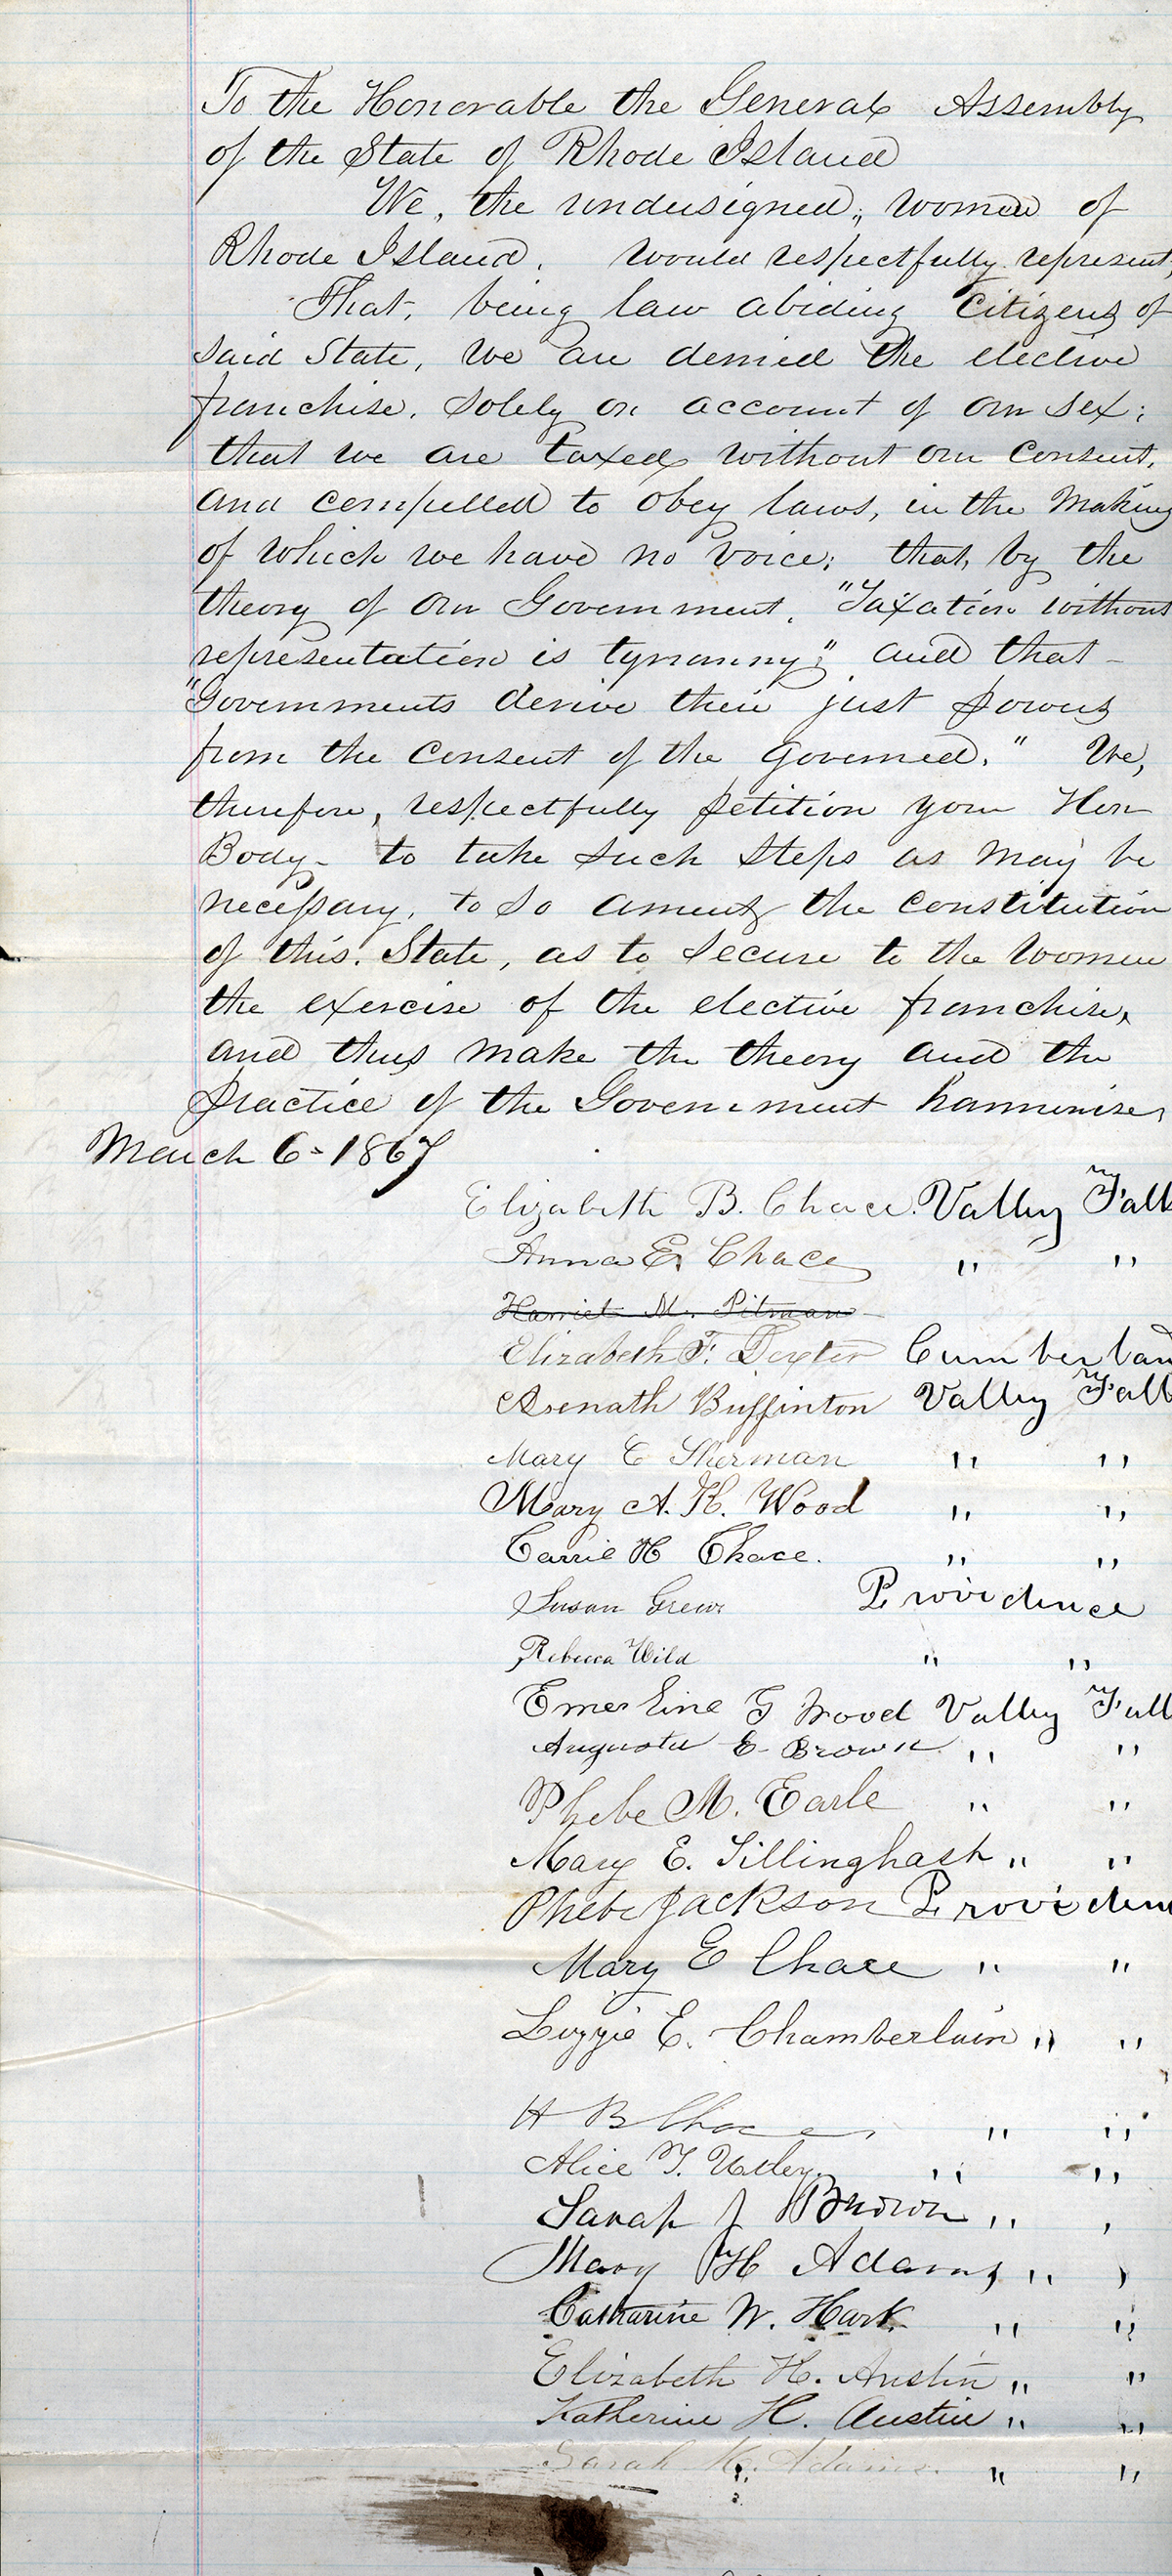 To the Honorable the General Assembly
of the State of Rhode Island
We, the undersigned, women of
Rhode Island, would respectfully represent,
That, being law abiding citizens of
said State, we are denied the elective
franchise, solely on account of our sex;
that we are taxed without our consent,
and compelled to obey laws, in the making
of which we have no voice; that, by the
theory of our Government, "Taxation without
representation is tyranny"; and that
"Governments derive their just powers
from the consent of the governed." We,
therefore, respectfully petition your Hon
Body - to take such steps as may be
necessary, to so amend the constitution
of this State, as to secure to the women
the exercise of the elective franchise,
and thus make the theory and the
practice of the Government harmonise,
March 6 - 1867
Elizabeth B. Chace. Valley Fall
Anna E. Chace " "
Harriet M. Pitman
Elizabeth F. Dexter Cumberlan
Asenath Buffinton Valley Fall
Mary C Sherman " "
Mary A. H. Wood " "
Carrie H Chace. " "
Susan Grew Providence
Rebecca Wild " "
Emerline G Wood Valley Fall
Augusta E. Brown " "
Phebe M. Earle " "
Mary E. Tillinghast " "
Phebe Jackson Providen
Mary E Chace " "
Lizzie E. Chamberlain " "
H B Chace " "
Alice T. Utley " "
Sarah J Brown " "
Mary H Adams " "
Catharine W. Hart. " "
Elizabeth H. Austin " "
Katherine H. Austin " "
Sarah Adams. " "